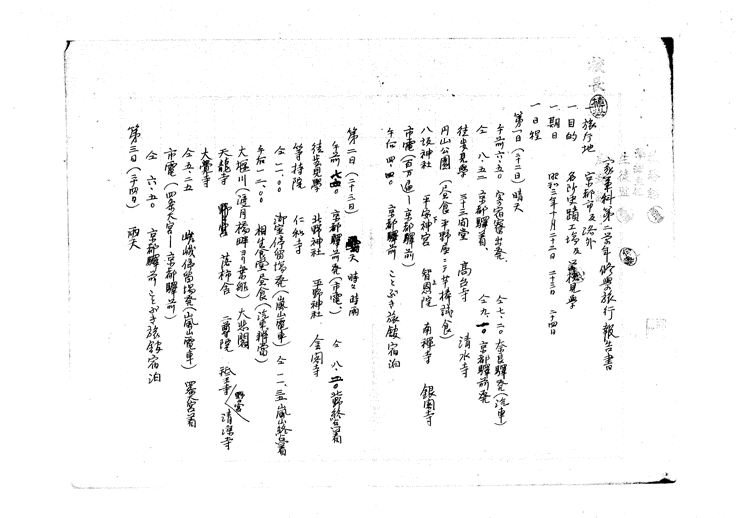 校長
家事科第二学年修学旅行報告書
一旅行地 京都市及洛外
一目的 名所史蹟工場及学校見学
一期日 昭和三年十月二十二日 二十三日 二十四日
一日程
第一日(二十二日) 晴天
午前六・五〇 寄宿寮出発、 仝七・二〇奈良驛発(汽車)
仝 八・五二 京都驛着、 仝九・一〇京都驛前発
徒歩見学 三十三間堂 高台寺 清水寺
円山公園(昼食平野屋ニテ芋棒試食)
八坂神社 平安神宮 智恩院 南禅寺 銀閣寺
市電(百万遍―京都驛前)
午后四・四〇 京都驛前 ことぶき旅館宿泊
第二日(二十三日) 天 時々時雨
午前 京都驛前発(市電) 仝八・二〇北野終点着
徒歩見学 北野神社 平野神社 金閣寺
等持院 仁和寺
仝一一・〇〇 御室停留場発(嵐山電車) 仝一一・三五嵐山終点着
午后一二・〇〇 相生食堂昼食(汽車辨当)
大堰川(渡月橋畔ヨリ乗船) 大悲閣
天龍寺 落柿舎 二尊院 祇王寺 野々宮 清涼寺
大覚寺
仝五・二五 嵯峨停留場発(嵐山電車) 四条大宮着
市電(四条大宮―京都驛前)
仝 六・五〇 京都驛前 ことぶき旅館宿泊
第三日(二十四日) 雨天